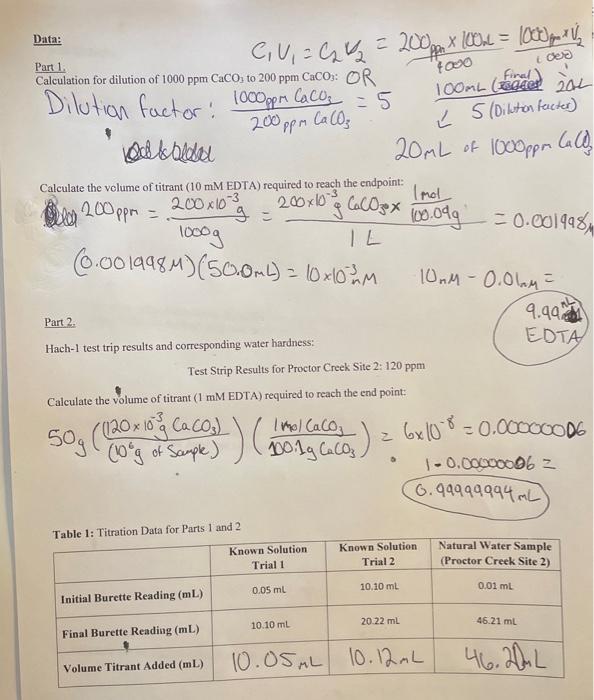 Data:
C₁V₁ = C₂V₂ = 200ppm × 100mL = 1000ppm × V₂
1000
1000
Part 1.
Calculation for dilution of 1000 ppm CaCO₃ to 200 ppm CaCO₃: OR
100mL (Final)
20mL
Dilution factor: 1000ppm CaCO₃ = 5
200 ppm CaCO₃
5 (Dilution factor)
20mL of 1000ppm CaCO₃
Calculate the volume of titrant (10 mM EDTA) required to reach the endpoint:
200ppm = 200×10⁻³g = 200×10⁻³g CaCO₃ × 1mol = 0.001998M
1000g
100.09g
1 L
(0.001998M)(50.0mL) = 10×10⁻³
10mM - 0.01mM =
9.99
EDTA
Part 2.
Hach-1 test trip results and corresponding water hardness:
Test Strip Results for Proctor Creek Site 2: 120 ppm
Calculate the volume of titrant (1 mM EDTA) required to reach the end point:
50g ((120×10⁻³g CaCO₃) (1 mol CaCO₃) = 6×10⁻⁸ = 0.00000006
(10⁶g of Sample)) 100.1g CaCO₃
1-0.00000006 =
0.99999994 mL
Table 1: Titration Data for Parts 1 and 2
Known Solution Trial 1 Known Solution Trial 2 Natural Water Sample (Proctor Creek Site 2)
Initial Burette Reading (mL) 0.05 mL 10.10 mL 0.01 mL
Final Burette Reading (mL) 10.10 mL 20.22 mL 46.21 mL
Volume Titrant Added (mL) 10.05mL 10.12mL 46.20mL